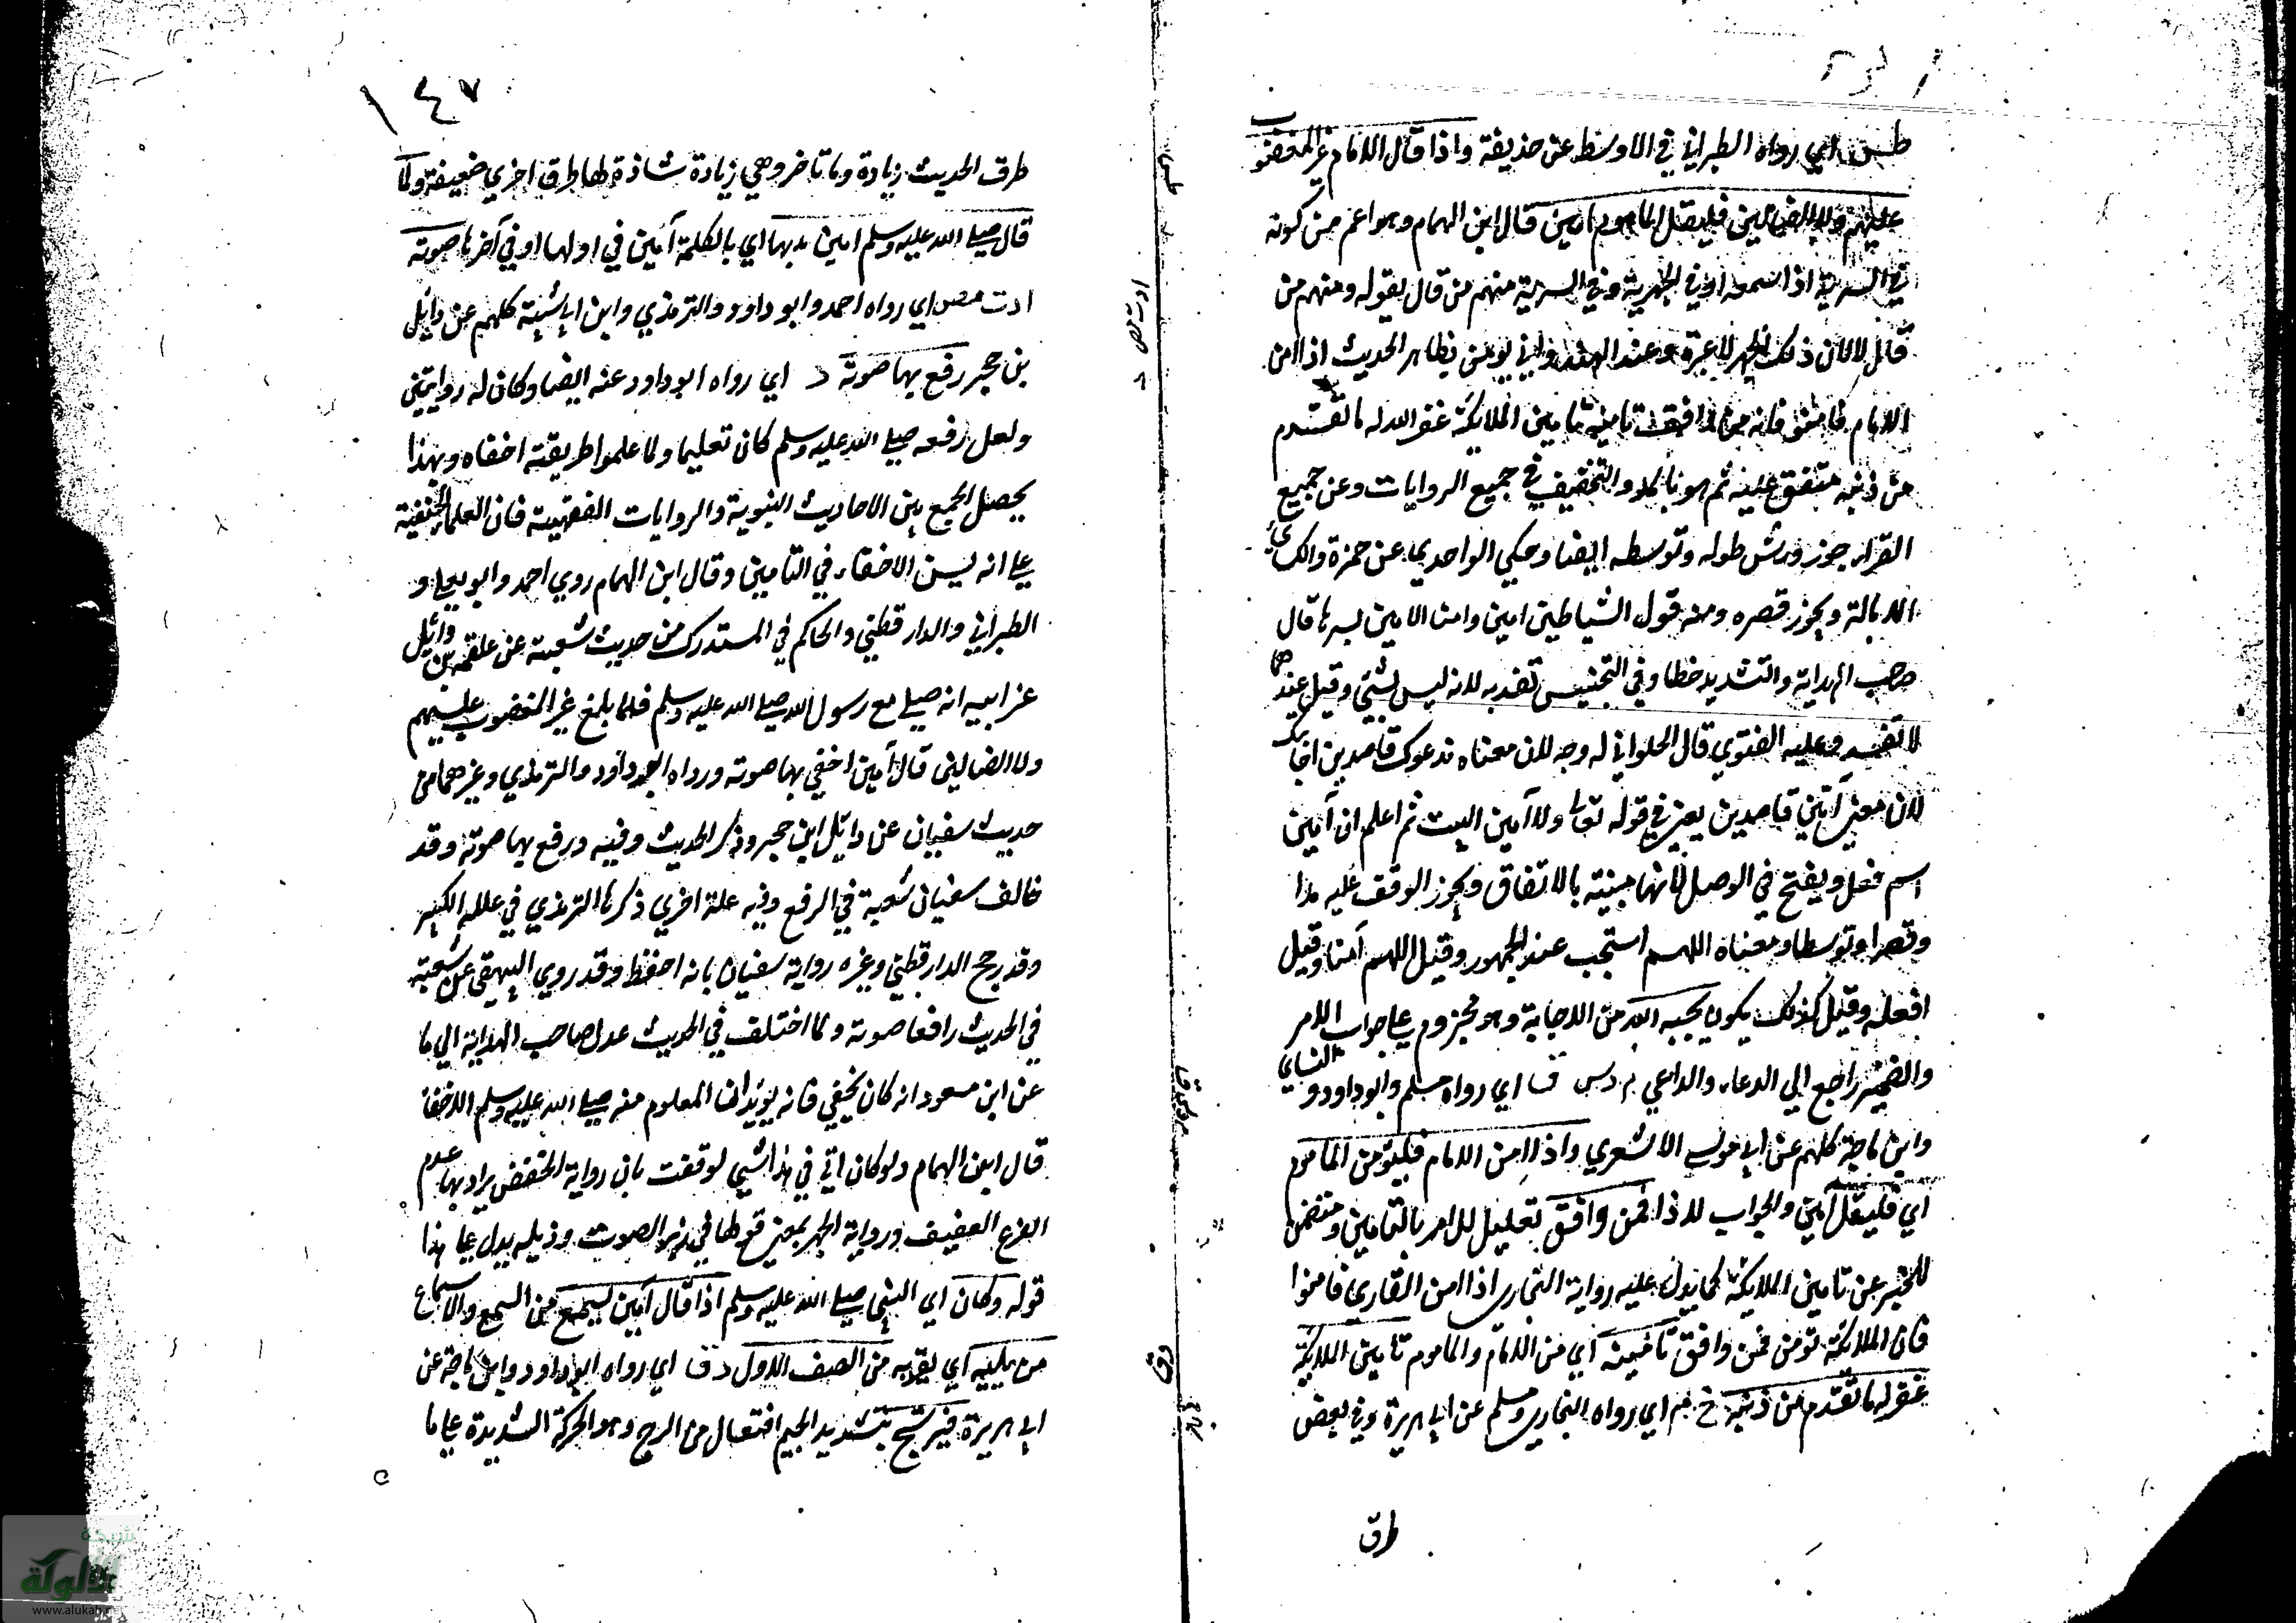 طس اي رواه الطبراني في الاوسط عن حذيفة واذا قال الامام غير المغضوب
عليهم ولا الضالين فليقل الماموم امين قال ابن الهمام وهو اعم من كونه
في السرية اذا سمعه او في الجهرية وفي السرية منهم من قال يقوله ومنهم من
قال لا لان ذلك الجهر لا عبرة وعند الهندواني يومن لظاهر الحديث اذا امن
الامام فامنوا فانه من وافق تامينه تامين الملائكة غفر الله له ما تقدم
من ذنبه متفق عليه ثم هو بالمد والتخفيف في جميع الروايات وعن جميع
القراء جوز ورش طوله وتوسطه ايضا وحكي الواحدي عن حمزة والكسائي
الامالة ويجوز قصره ومنه قول الشياطين امين وامنا الامين لسرها قال
صاحب الهداية والتشديد خطا وفي التجنيس تفسد به لانه ليس بشئ وقيل عندهما
لا تفسد وعليه الفتوي قال الحلواني له وجه لان معناه ندعوك قاصدين اجابتك
لان معني آمّين قاصدين يعني في قوله تعالى ولا آمين البيت ثم اعلم ان آمين
اسم فعل ويفتح في الوصل لانها مبنية بالاتفاق ويجوز الوقف عليه مدا
وقصرا وتوسطا ومعناه اللهم استجب عند الجمهور وقيل اللهم آمنا وقيل
افعله وقيل كذلك يكون يجبه الله من الاجابة وهو مجزوم علي جواب الامر
والضمير راجع الي الدعاء والداعي م د س ق اي رواه مسلم وابو داود والنسائي
وابن ماجة كلهم عن ابي موسي الاشعري واذا امن الامام فليؤمن الماموم
اي فليقل آمين والجواب لاذا فمن وافق تعليل للامر بالتامين ومتضمن
للخبر عن تامين الملائكة كما يدل عليه رواية البخاري اذا امن القاري فامنوا
فان الملائكة تومن فمن وافق تامينه اي من الامام والماموم تامين الملائكة
غفر له ما تقدم من ذنبه خ م اي رواه البخاري ومسلم عن ابي هريرة وفي بعض
طرق
١٤٧
طرق الحديث زيادة وما تاخر وهي زيادة شاذة لها طرق اخري ضعيفة ولما
قال صلي الله عليه وسلم امين مد بها اي بالكلمة آمين في اولها او في آخرها صوته
ا د ت مص اي رواه احمد وابو داود والترمذي وابن ابي شيبة كلهم عن وائل
بن حجر رفع بها صوته د اي رواه ابو داود عنه ايضا وكان له روايتين
ولعل رفعه صلي الله عليه وسلم كان تعليما ولما علموا طريقته اخفاه وبهذا
يحصل الجمع بين الاحاديث النبوية والروايات الفقهية فان العلماء الحنفية
علي انه يسن الاخفاء في التامين وقال ابن الهمام روي احمد وابو يعلي و
الطبراني والدارقطني والحاكم في المستدرك من حديث شعبة عن علقمة بن وائل
عن ابيه انه صلي مع رسول الله صلي الله عليه وسلم فلما بلغ غير المغضوب عليهم
ولا الضالين قال آمين اخفي بها صوته ورواه ابو داود والترمذي وغيرهما من
حديث سفيان عن وائل ابن حجر وذكر الحديث وفيه ورفع بها صوته وقد
خالف سفيان شعبة في الرفع وفيه علة اخري ذكرها الترمذي في علله الكبير
وقد رجح الدارقطني وغيره رواية سفيان بانه احفظ وقد روي البيهقي عن شعبة
في الحديث رافعا صوته ولما اختلف في الحديث عدل صاحب الهداية الي ما
عن ابن مسعود انه كان يخفي فانه يؤيد ان المعلوم منه صلي الله عليه وسلم الاخفا
قال ابن الهمام ولو كان الي في هذا شيئ لوفقت بان رواية الخفض يراد بها عدم
القرع العنيف ورواية الجهر بمعني قولها في زير الصوت وذيله يدل علي هذا
قوله وكان اي النبي صلي الله عليه وسلم اذا قال آمين ليسمع من السمع والاسماع
من يليه اي يقربه من الصف الاول د ق اي رواه ابو داود وابن ماجة عن
ابي هريرة فيرتج بتشديد الجيم افتعال من الرج وهو الحركة الشديدة علي ما
شبكة
الألوكة
www.alukah.net